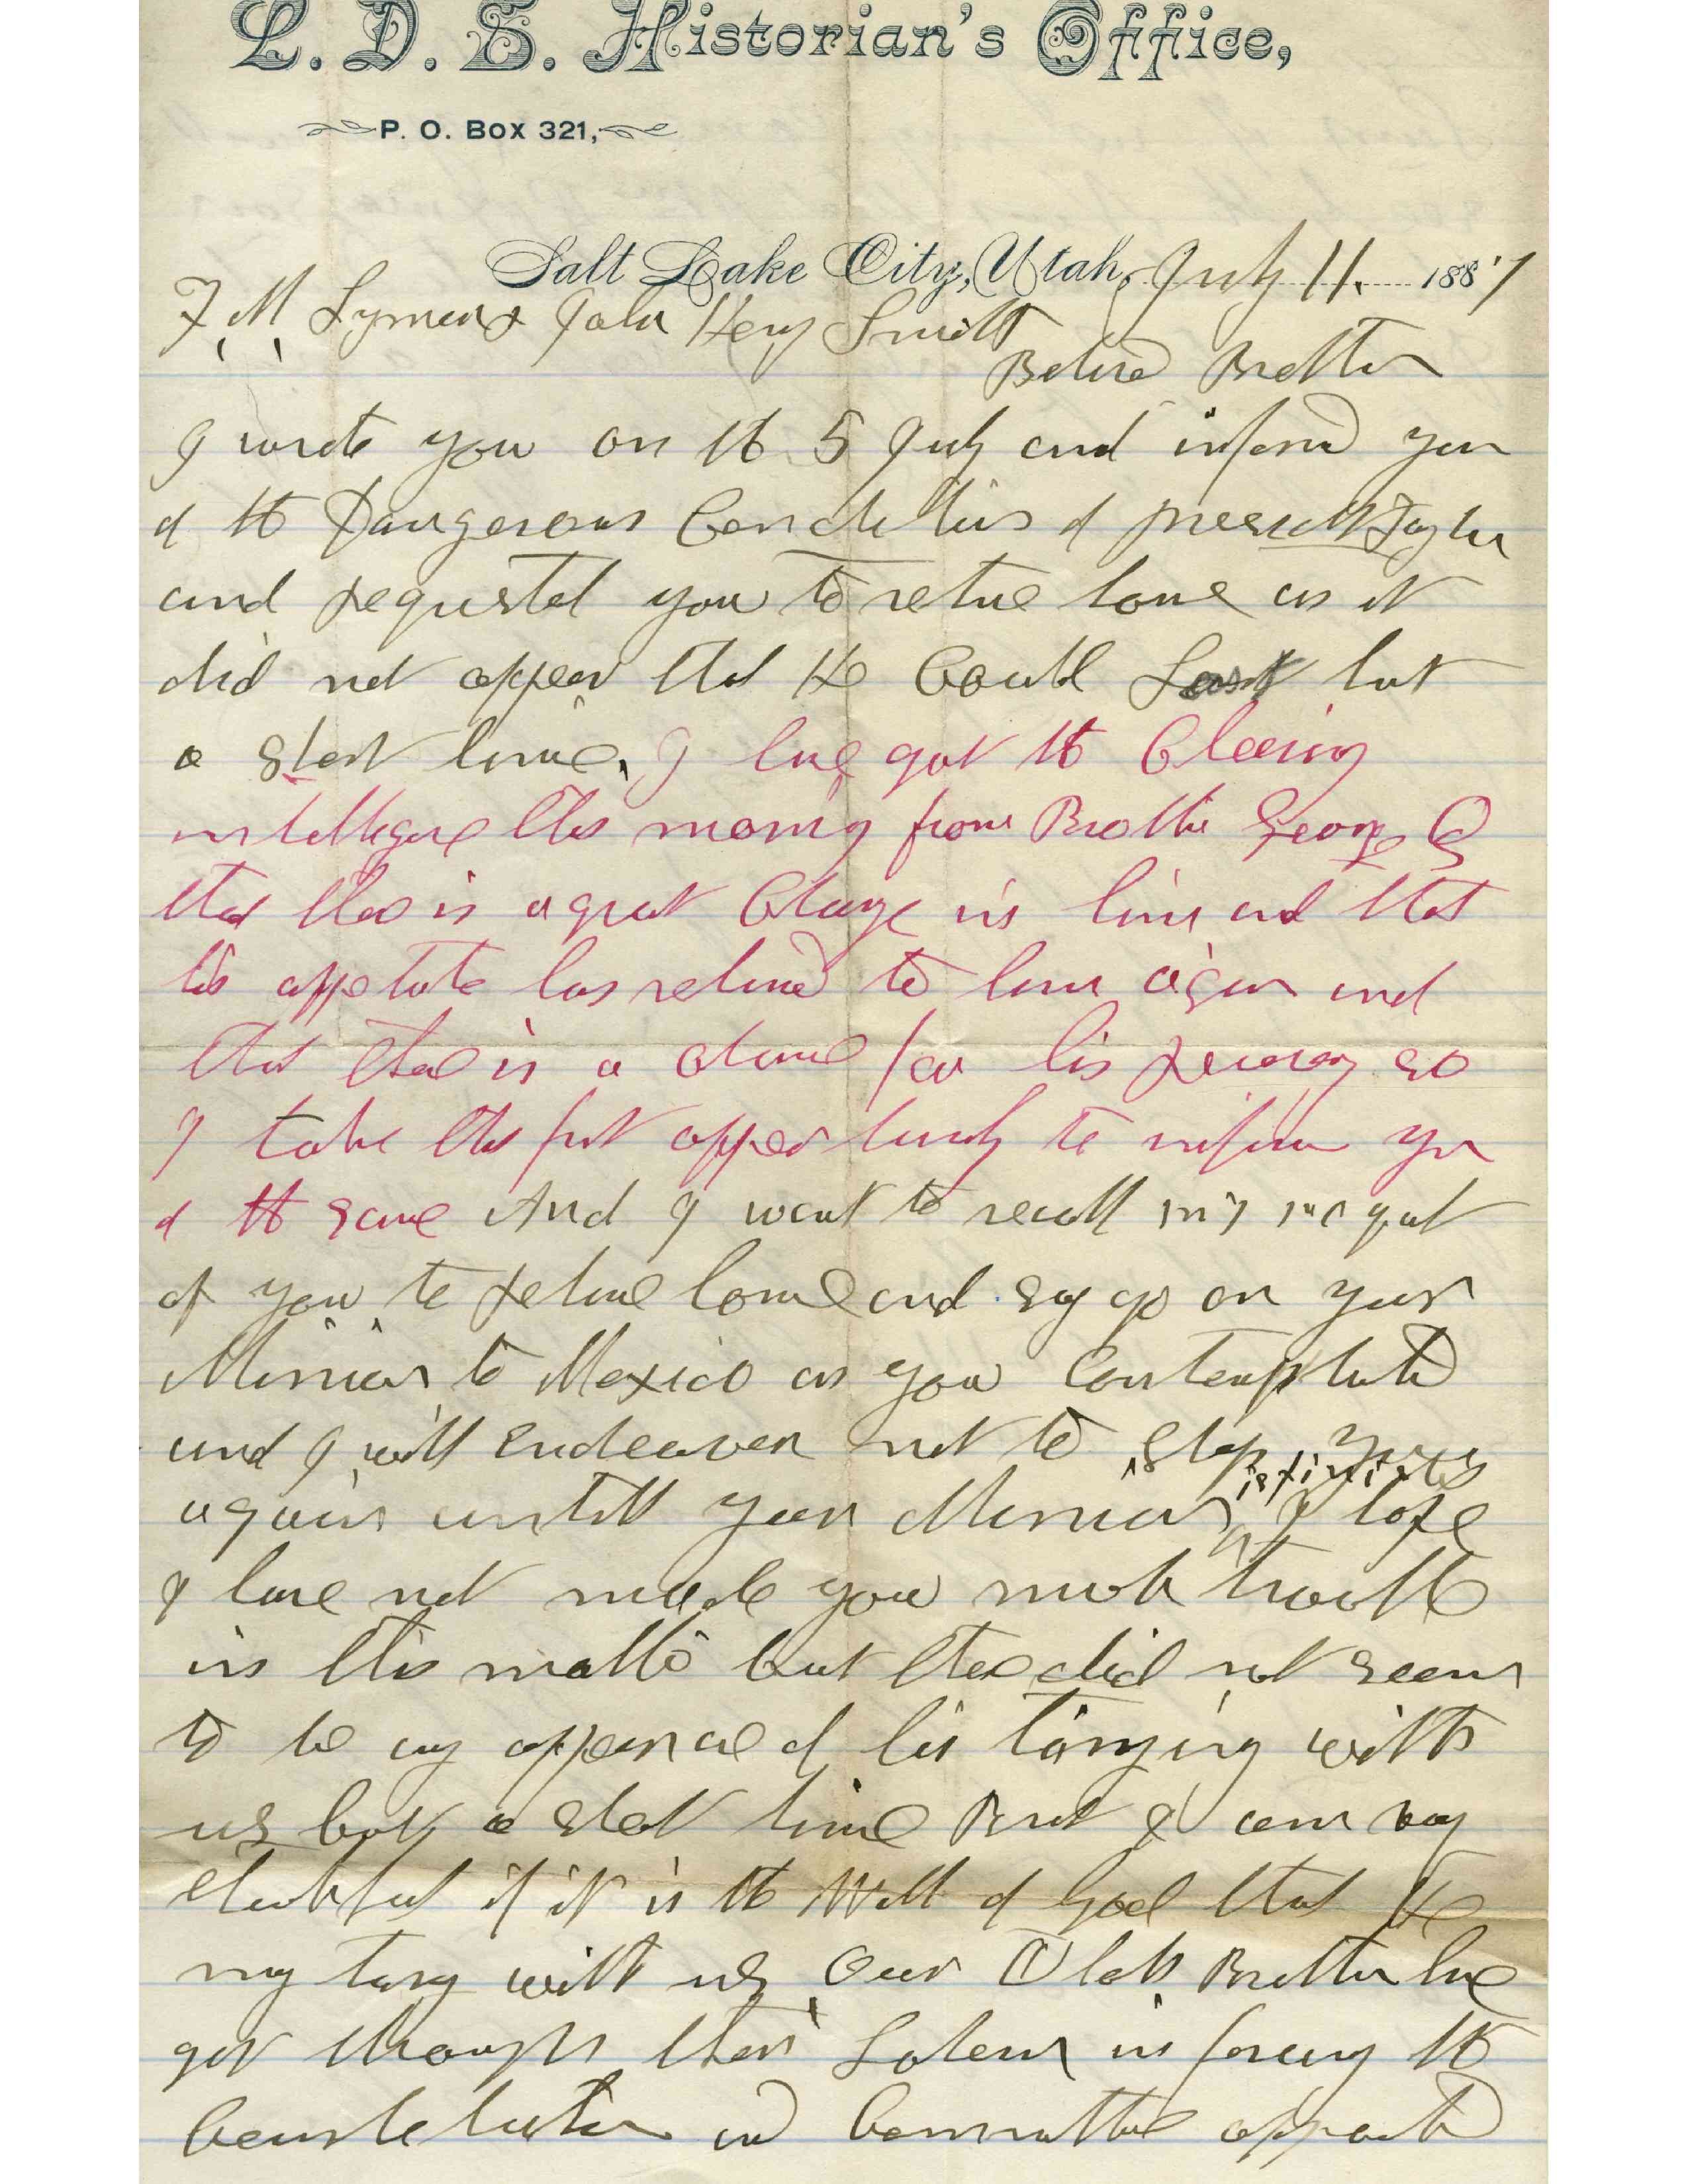 L. D. S. Historian's Office,
P. O. Box 321,
Salt Lake City, Utah, July 11. 1887
F. M. Lyman & John Henry Smith
Beloved Brethren
I wrote you on the 5 July and informd you
of the Dangerous Condition of President Taylor
and requested you to return home as it
did not appear that He Could Last but
a short time, I have got the Cheering
intelligence this morning from Brother George Q
that there is a great Change in him and that
his appetite has returned to him again and
that there is a chance for his recovery so
I take the first opportunity to inform you
of the same And I want to recall my request
of you to return home and say go on your
Mission to Mexico as you Contemplated
and I will endeavor not to stop you
again untill your Mission is finished I hope
I have not made you much trouble
in this matter but there did not seem
to be any appearance of his tarrying with
us but a short time But I am very
thankful if it is the Will of God that He
may tarry with us, Our Utah Brethren have
got through their Labor in forming the
Constitution and Committee appointed